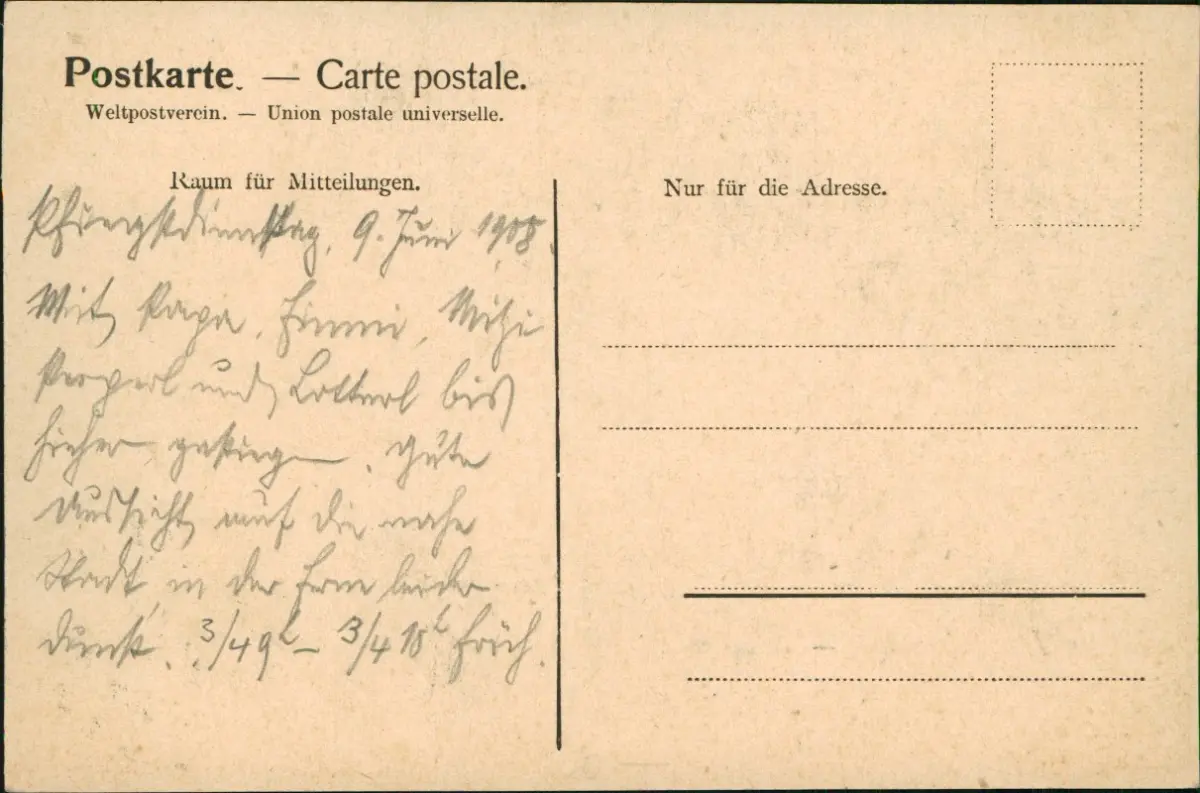 Postkarte. — Carte postale.
Weltpostverein. — Union postale universelle.
Raum für Mitteilungen.
Nur für die Adresse.
Pfingstdienstag, 9. Juni 1908.
Mit Papa, Emmi, Mizi
und Lotterl bis
hieher gestiegen. Gute
Aussicht auf die nahe
Stadt, in der Ferne leider
Dunst. 3/4 9h – 3/4 10h früh.